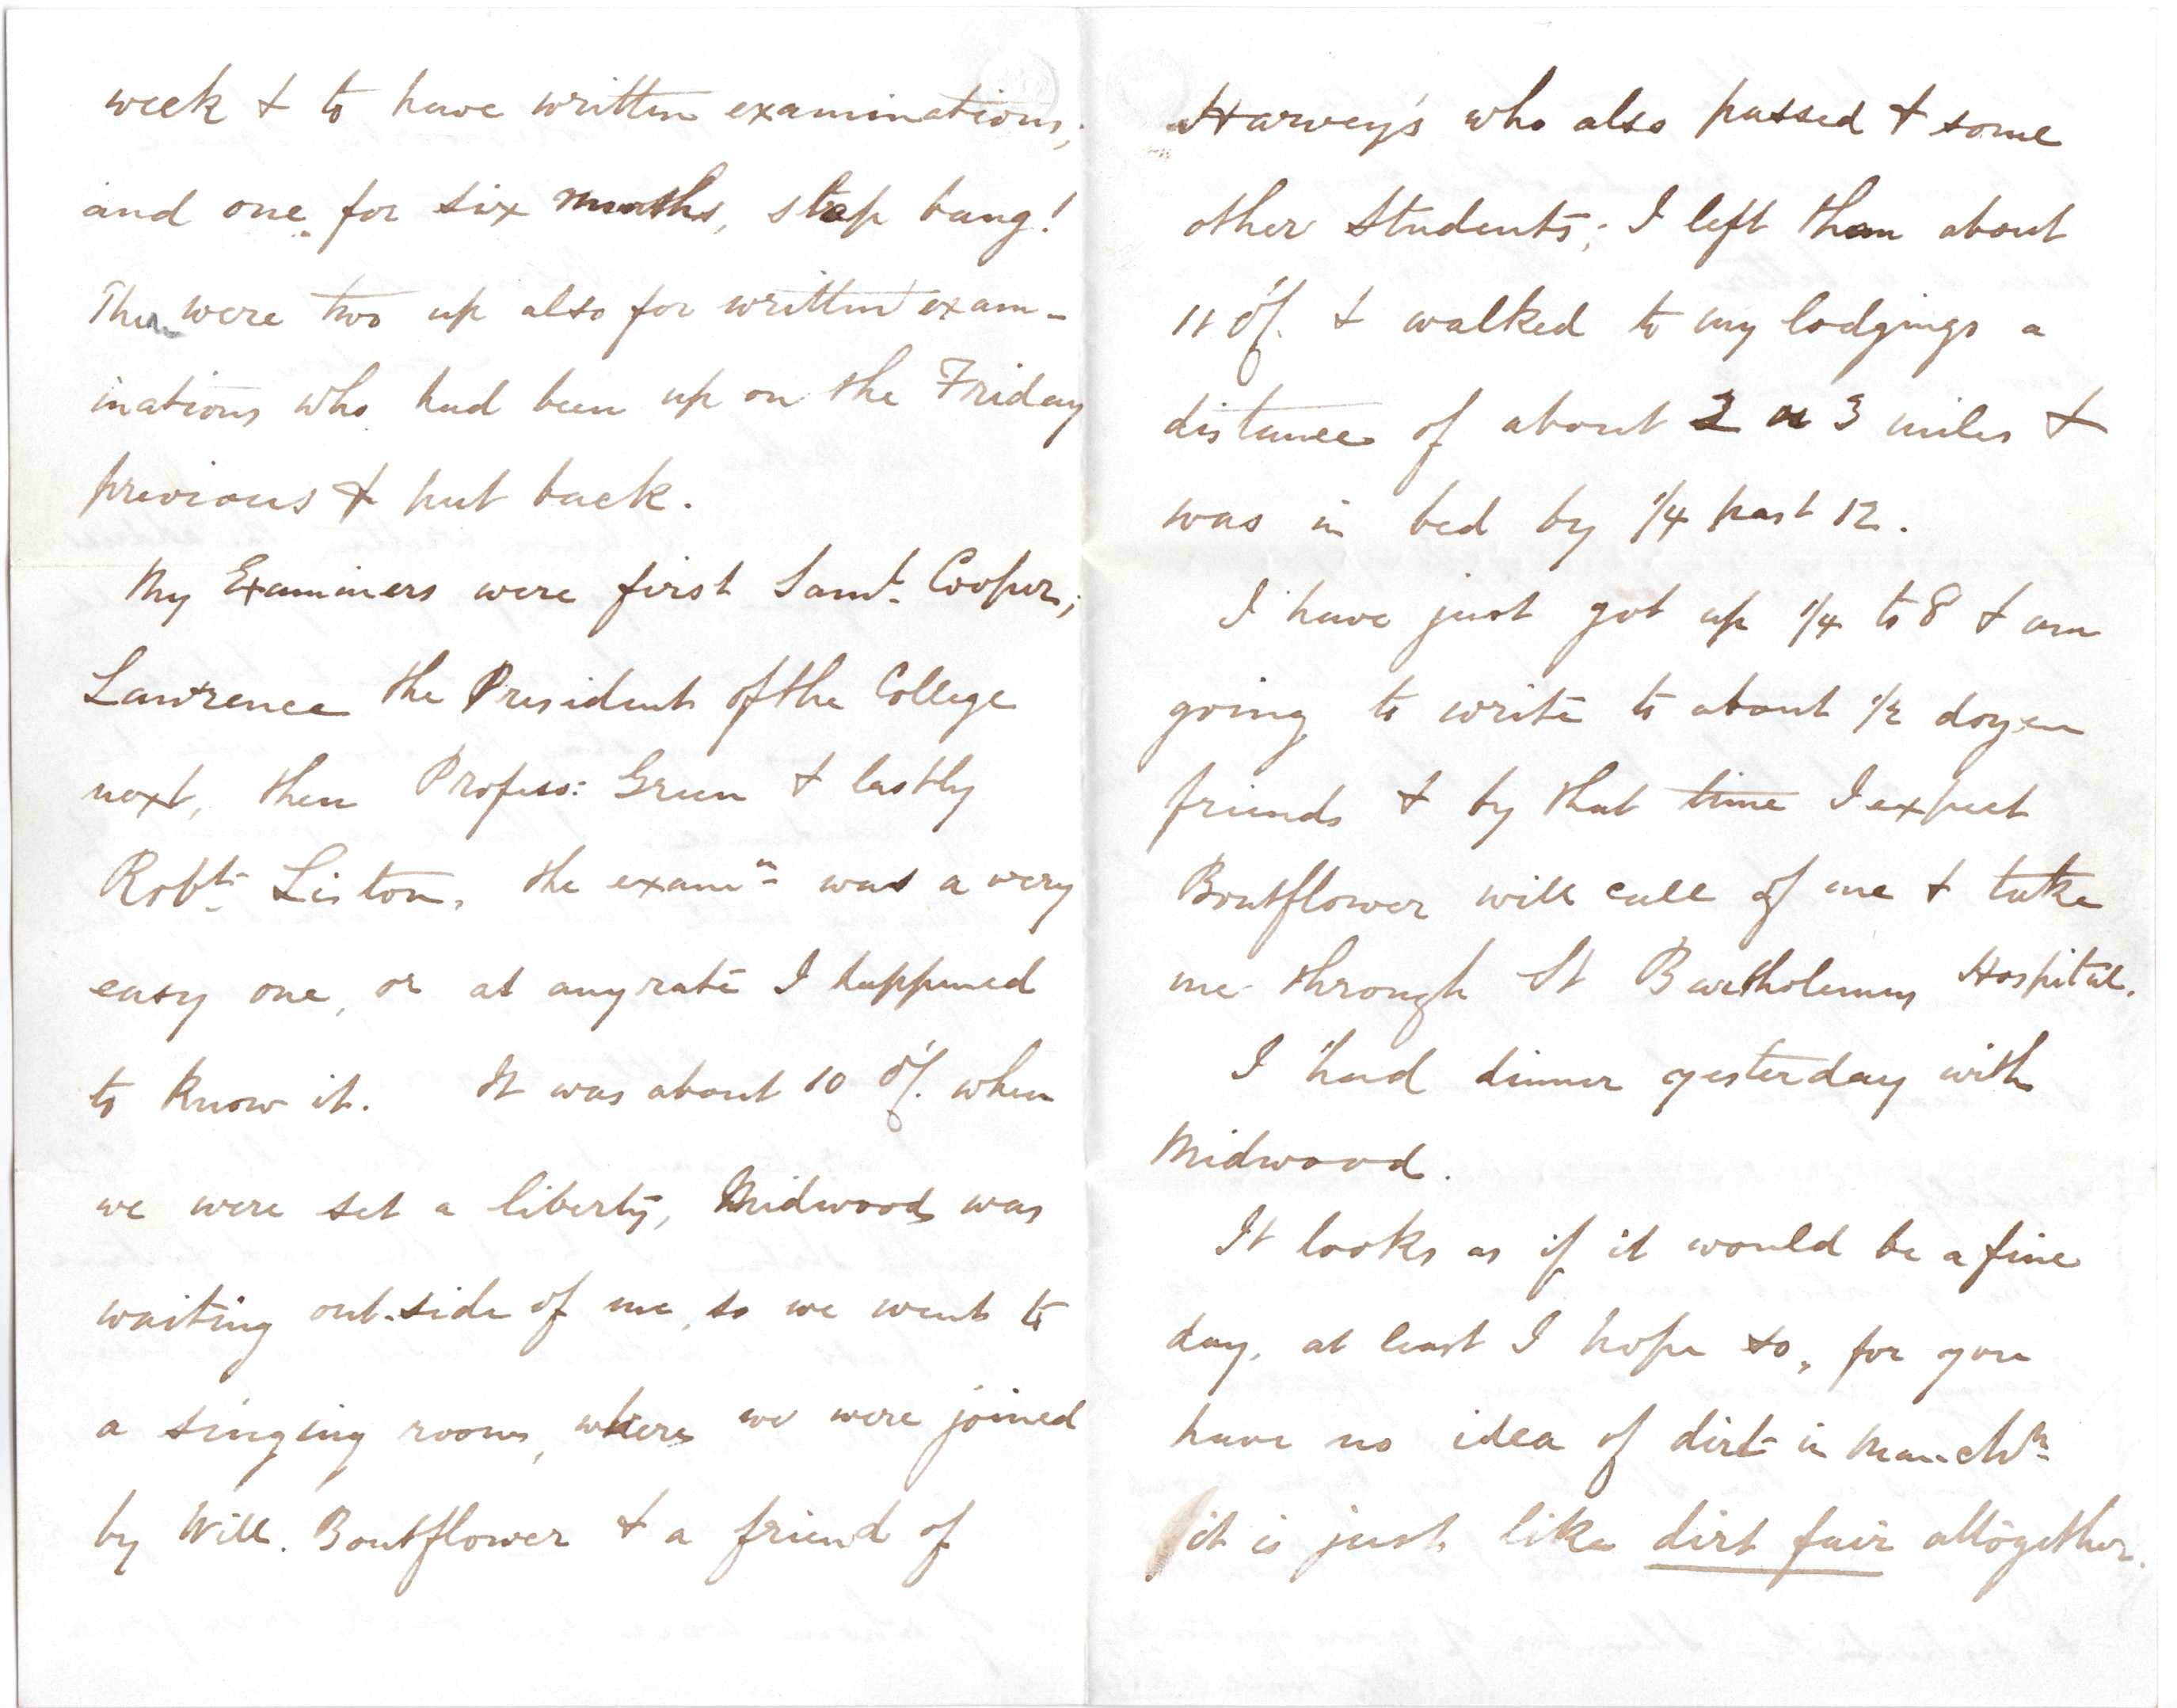 week & to have written examinations;
and one for six months, slap bang!
There were two up also for written exam-
inations who had been up on the Friday
previous & put back.
My Examiners were first Saml. Cooper;
Lawrence the President of the College
next, then Profess: Green & lastly
Robt. Liston, the examn. was a very
easy one, or at any rate I happened
to know it. It was about 10 o'/. when
we were set a liberty, Midwood was
waiting out-side of me, so we went to
a singing room, where we were joined
by Will. Boutflower & a friend of
Harvey's who also passed & some
other Students; I left them about
11 o'/. & walked to my lodgings a
distance of about 2 or 3 miles &
was in bed by 1/4 past 12.
I have just got up 1/4 to 8 & am
going to write to about 1/2 dozen
friends & by that time I expect
Boutflower will call of me & take
me through St Bartholemews Hospital.
I had dinner yesterday with
Midwood.
It looks as if it would be a fine
day, at least I hope so, for you
have no idea of dirt in Manchr.
it is just like dirt fair altogether.